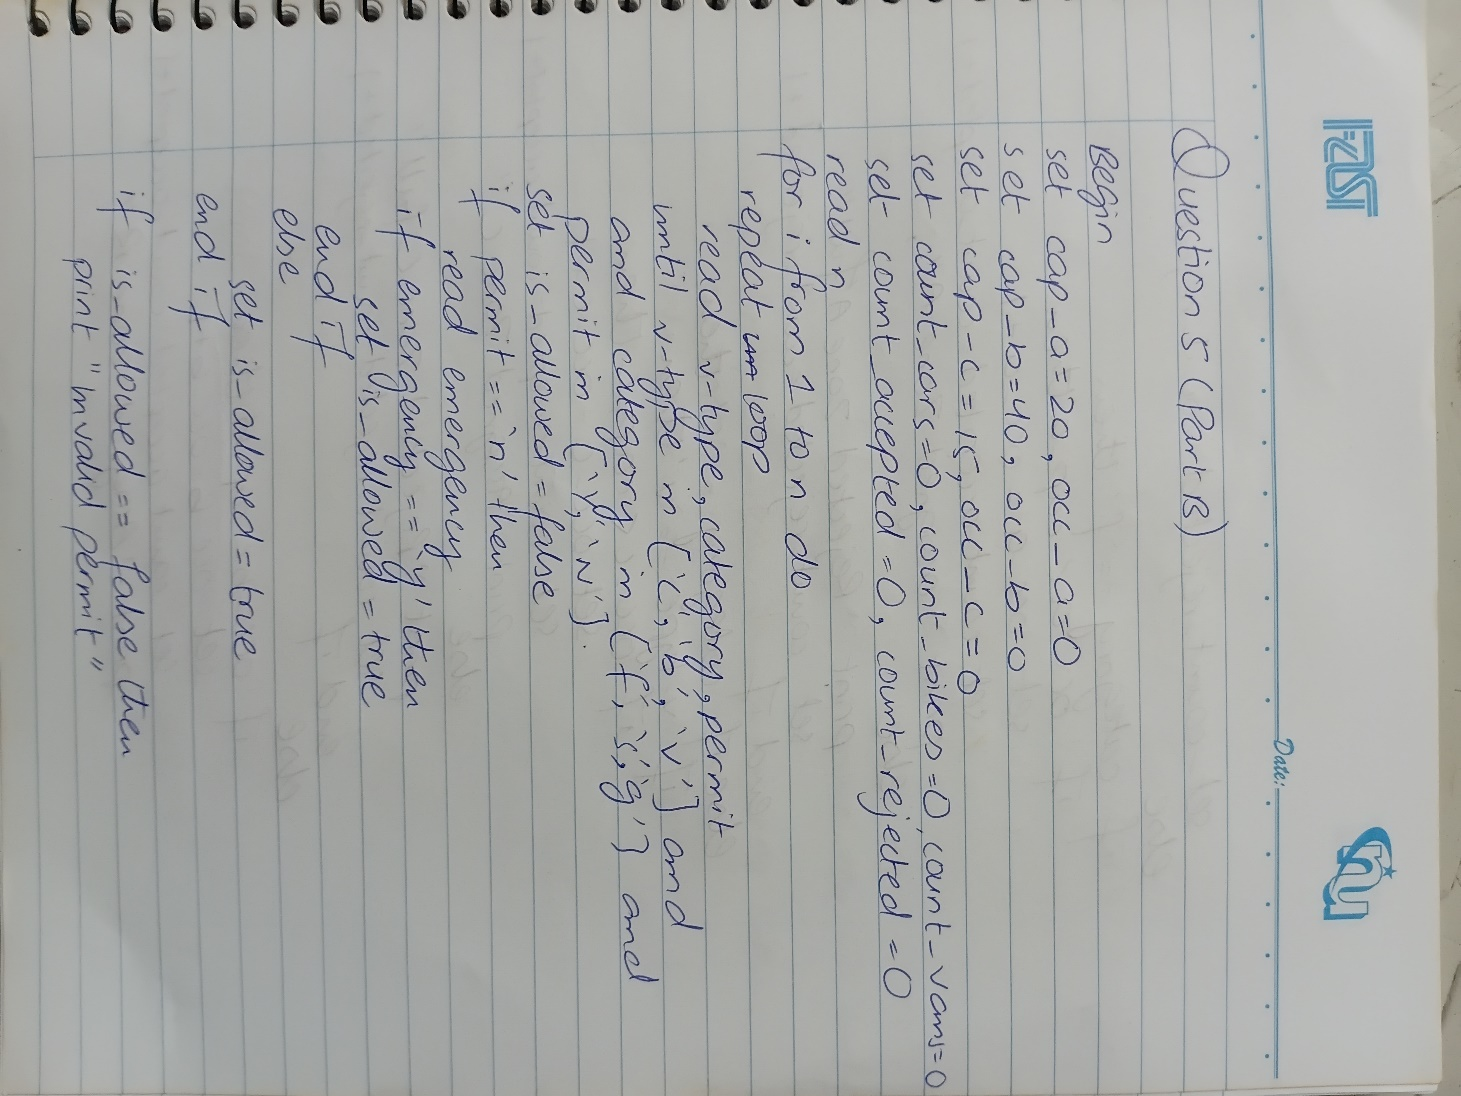 FAST
Date:
nu
Question 5 (Part B)
Begin
set cap_a=20, occ_a=0
set cap_b=40, occ_b=0
set cap_c=15, occ_c=0
set count_cars=0, count_bikes=0, count_vans=0
set count_accepted=0, count_rejected=0
read n
for i from 1 to n do
repeat loop
read v-type, category, permit
until v-type in ['c', 'b', 'v'] and
and category in ['f', 's', 'g'] and
permit in ['Y', 'N'].
set is_allowed = false
if permit == 'n' then
read emergency
if emergency == 'y' then
set is_allowed = true
end if
else
set is_allowed = true
end if
if is_allowed == false then
print "invalid permit"